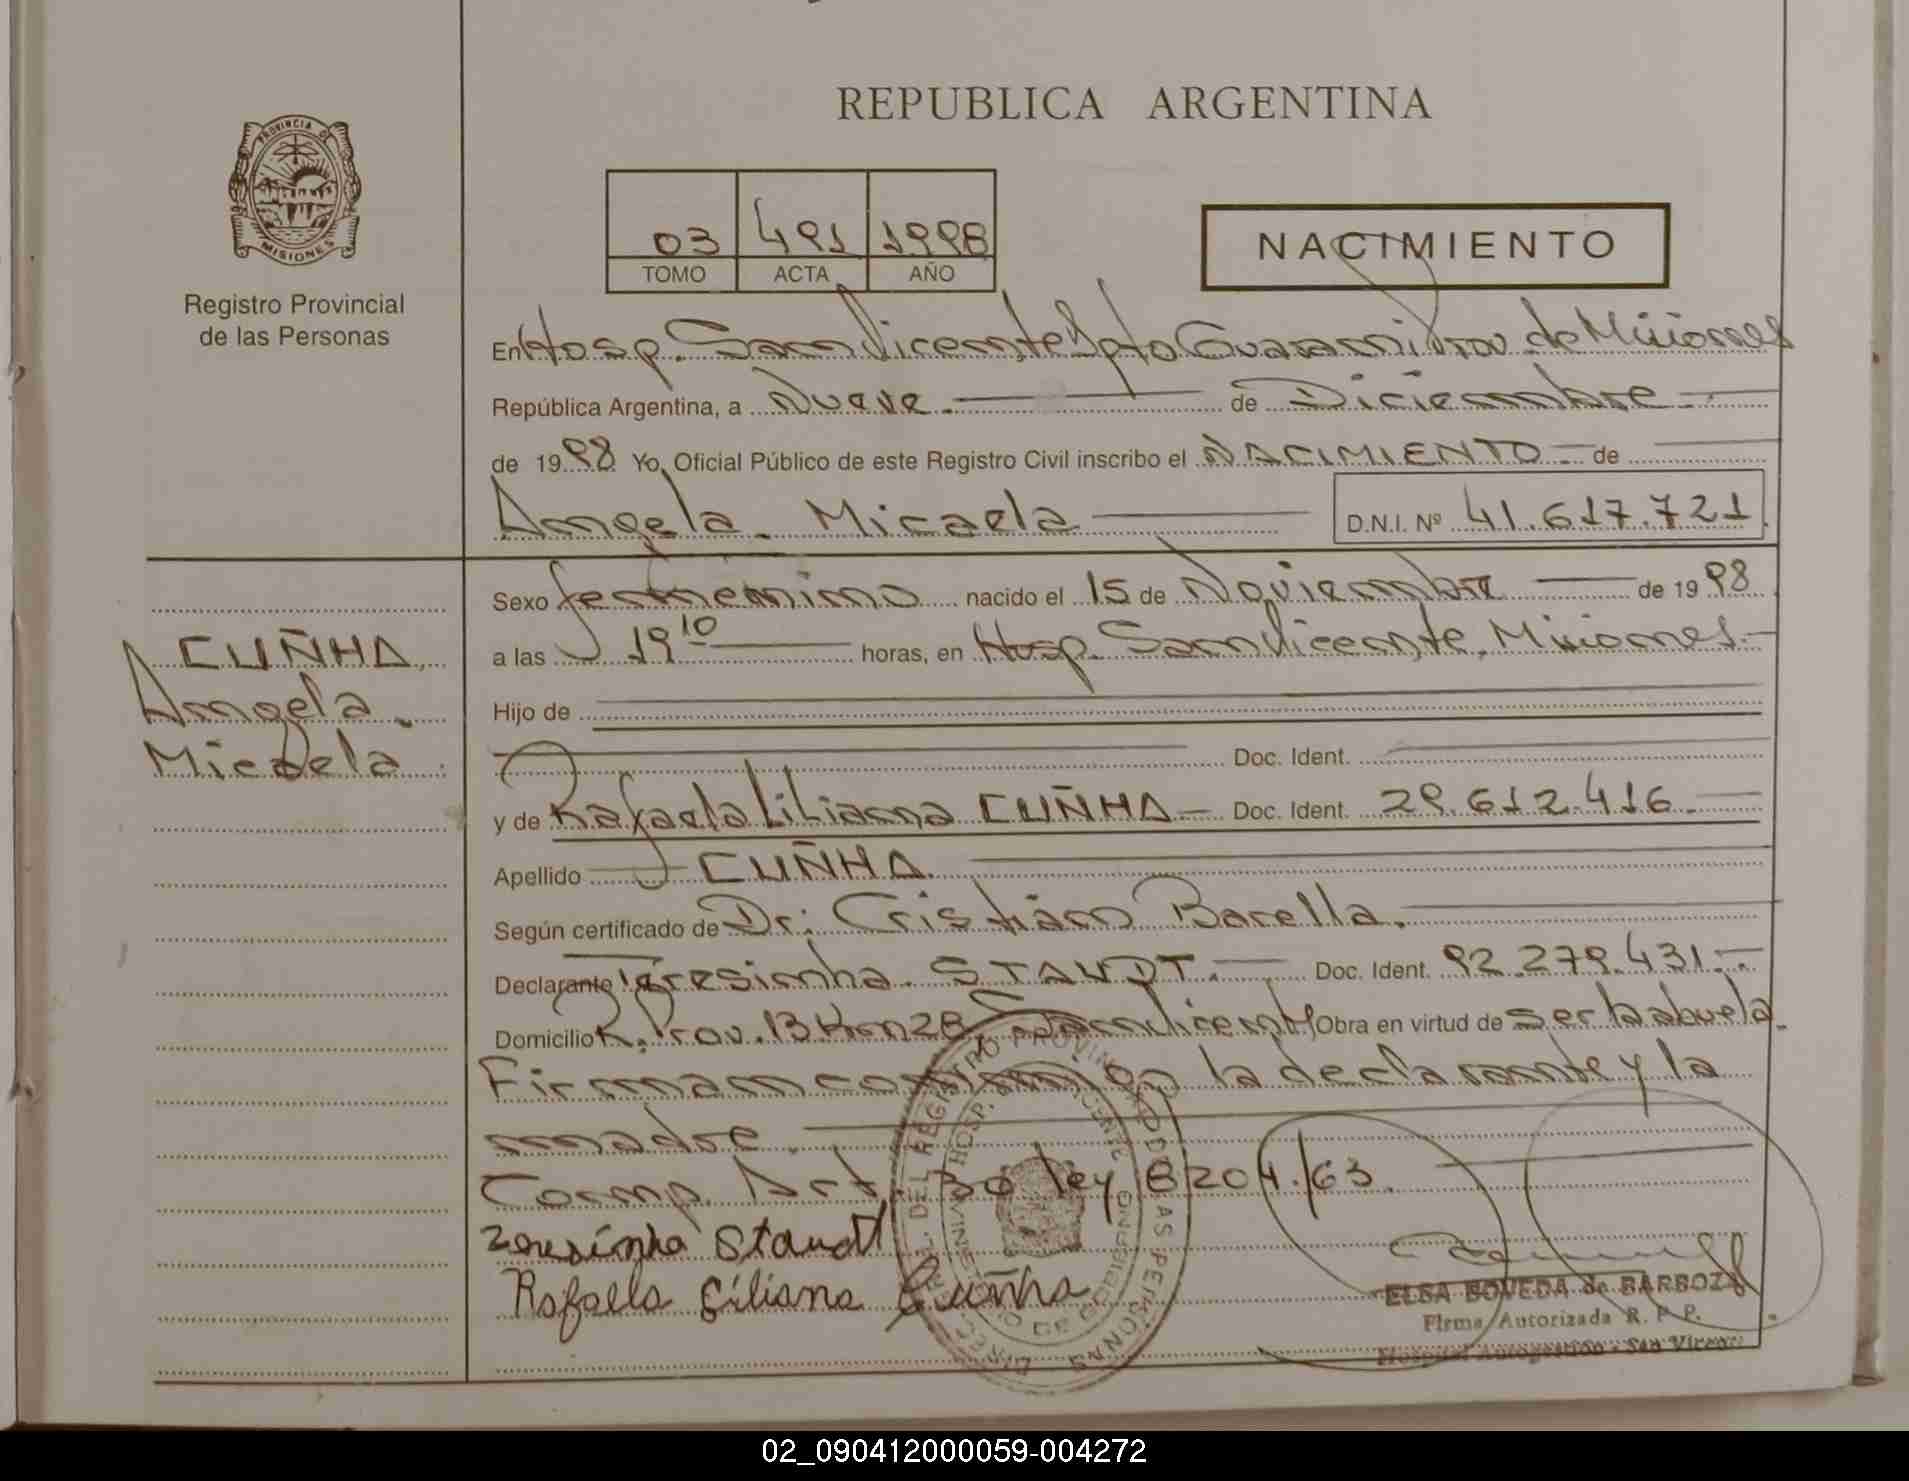 REPUBLICA ARGENTINA
PROVINCIA DE
MISIONES
Registro Provincial
de las Personas
03 491 1998
TOMO ACTA AÑO
NACIMIENTO
En Hosp. San Vicente Dpto Guarani Prov. de Misiones
República Argentina, a Nueve de Diciembre
de 1998 Yo, Oficial Público de este Registro Civil inscribo el NACIMIENTO de
Angela Micaela D.N.I. Nº 41.617.721
CUÑHA
Angela
Micaela
Sexo femenino nacido el 15 de Noviembre de 1998
a las 19 10 horas, en Hosp. San Vicente, Misiones.
Hijo de
Doc. Ident.
y de Rafaela Liliana CUÑHA Doc. Ident. 29.612.416
Apellido CUÑHA
Según certificado de Dr: Cristian Barella.
Declarante Teresinha STAUDT. Doc. Ident. 92.279.431.
Domicilio R. Prov. 13 Km 28 San Vicente Obra en virtud de ser la abuela.
Firman conmigo la declarante y la
madre.
Comp. Art. 30 ley 8204/63.
Teresinha Staudt
Rafaela Liliana Cuñha
ELSA BOVEDA de BARBOZA
Firma Autorizada R. P. P.
Hospital Autogestión - San Vicente
02_090412000059-004272